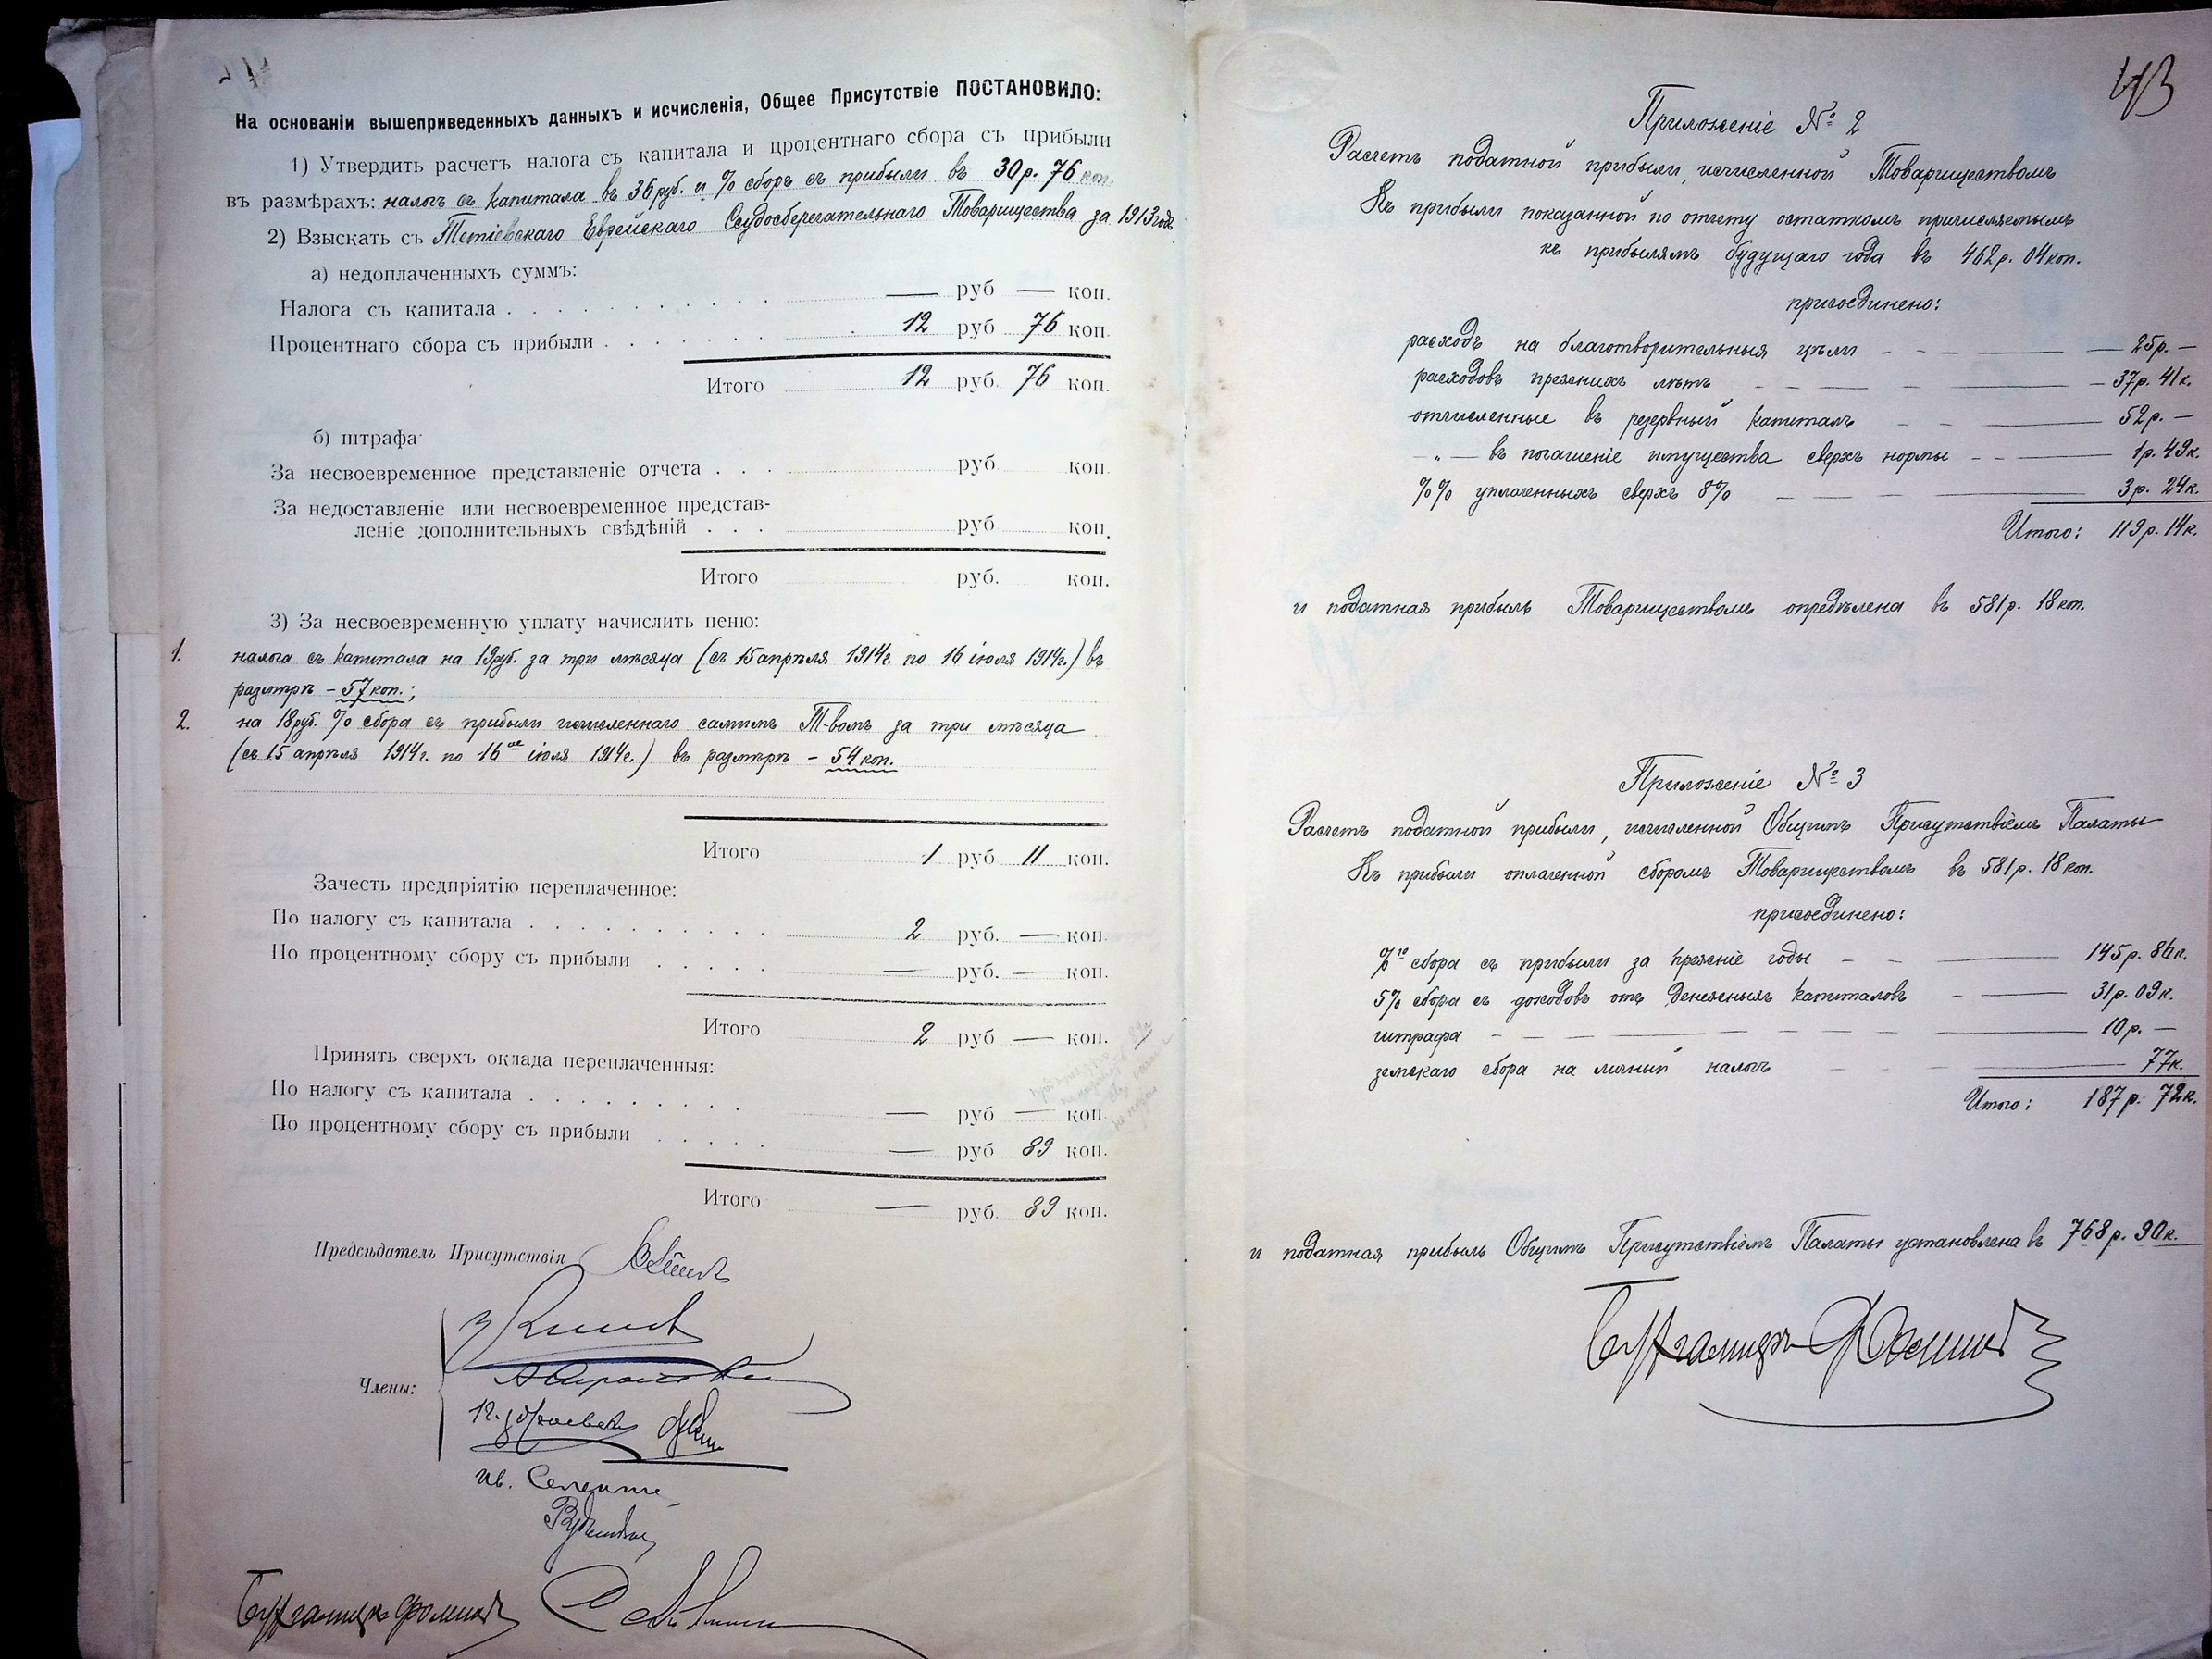 На основаніи вышеприведенныхъ данныхъ и исчисленія, Общее Присутствіе ПОСТАНОВИЛО:
1) Утвердить расчетъ налога съ капитала и процентнаго сбора съ прибыли
въ размѣрахъ: налогъ съ капитала въ 36 руб. и % сборъ съ прибыли въ 30 р. 76 коп.
2) Взыскать съ Тетіевскаго Еврейскаго Ссудосберегательнаго Товарищества за 1913 годъ
а) недоплаченныхъ суммъ:
Налога съ капитала . . . . . . . . . — руб — коп.
Процентнаго сбора съ прибыли . . . . . . 12 руб 76 коп.
Итого 12 руб. 76 коп.
б) штрафа
За несвоевременное представленіе отчета . . . руб коп.
За недоставленіе или несвоевременное представ-
леніе дополнительныхъ свѣдѣній . . . руб коп.
Итого руб. коп.
3) За несвоевременную уплату начислить пеню:
1. налога съ капитала на 19 руб. за три мѣсяца (съ 15 апрѣля 1914 г. по 16 іюля 1914 г.) въ
размѣрѣ – 57 коп.;
2. на 18 руб. % сбора съ прибыли исчисленнаго самимъ Т-вомъ за три мѣсяца
(съ 15 апрѣля 1914 г. по 16ое іюля 1914 г.) въ размѣрѣ – 54 коп.
Итого 1 руб 11 коп.
Зачесть предпріятію переплаченное:
По налогу съ капитала . . . . . . . . . . 2 руб. — коп
По процентному сбору съ прибыли . . . . . — руб. — коп.
Итого 2 руб — коп.
Принять сверхъ оклада переплаченныя:
По налогу съ капитала . . . . . . . . . — руб — коп
По процентному сбору съ прибыли . . . . . — руб 89 коп.
Итого — руб. 89 коп.
Предсѣдатель Присутствія
Члены:
43
Приложеніе № 2
Расчетъ податной прибыли, исчисленной Товариществомъ
Къ прибыли показанной по отчету остаткомъ причисляемымъ
къ прибылямъ будущаго года въ 462 р. 04 коп.
присоединено:
расходъ на благотворительныя цѣли — 25 р. —
расходовъ прежнихъ лѣтъ — 37 р. 41 к.
отчисленные въ резервный капиталъ — 52 р. —
– „ – въ погашеніе имущества сверхъ нормы — 1 р. 49 к.
%% уплаченныхъ сверхъ 8% — 3 р. 24 к.
Итого: 119 р. 14 к.
и податная прибыль Товариществомъ опредѣлена въ 581 р. 18 коп.
Приложеніе № 3
Расчетъ податной прибыли, исчисленной Общимъ Присутствіемъ Палаты
Къ прибыли оплаченной сборомъ Товариществомъ въ 581 р. 18 коп.
присоединено:
%го сбора съ прибыли за прежніе годы — 145 р. 86 к.
5% сбора съ доходовъ отъ денежныхъ капиталовъ — 31 р. 09 к.
штрафа — 10 р. —
земскаго сбора на личный налогъ — 77 к.
Итого: 187 р. 72 к.
и податная прибыль Общимъ Присутствіемъ Палаты установлена въ 768 р. 90 к.